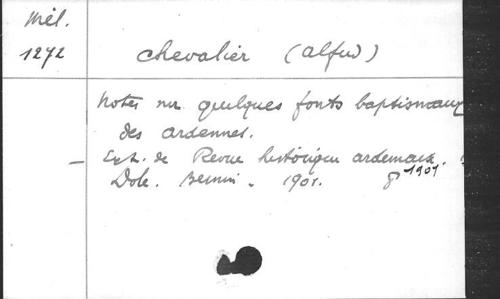 Mél.
1272
Chevalier (Alfred)
Notes sur quelques fonts baptismaux
des Ardennes.
— Ext. de Revue historique ardennaise.
Dole. Bernin. 1901. 8° 1901